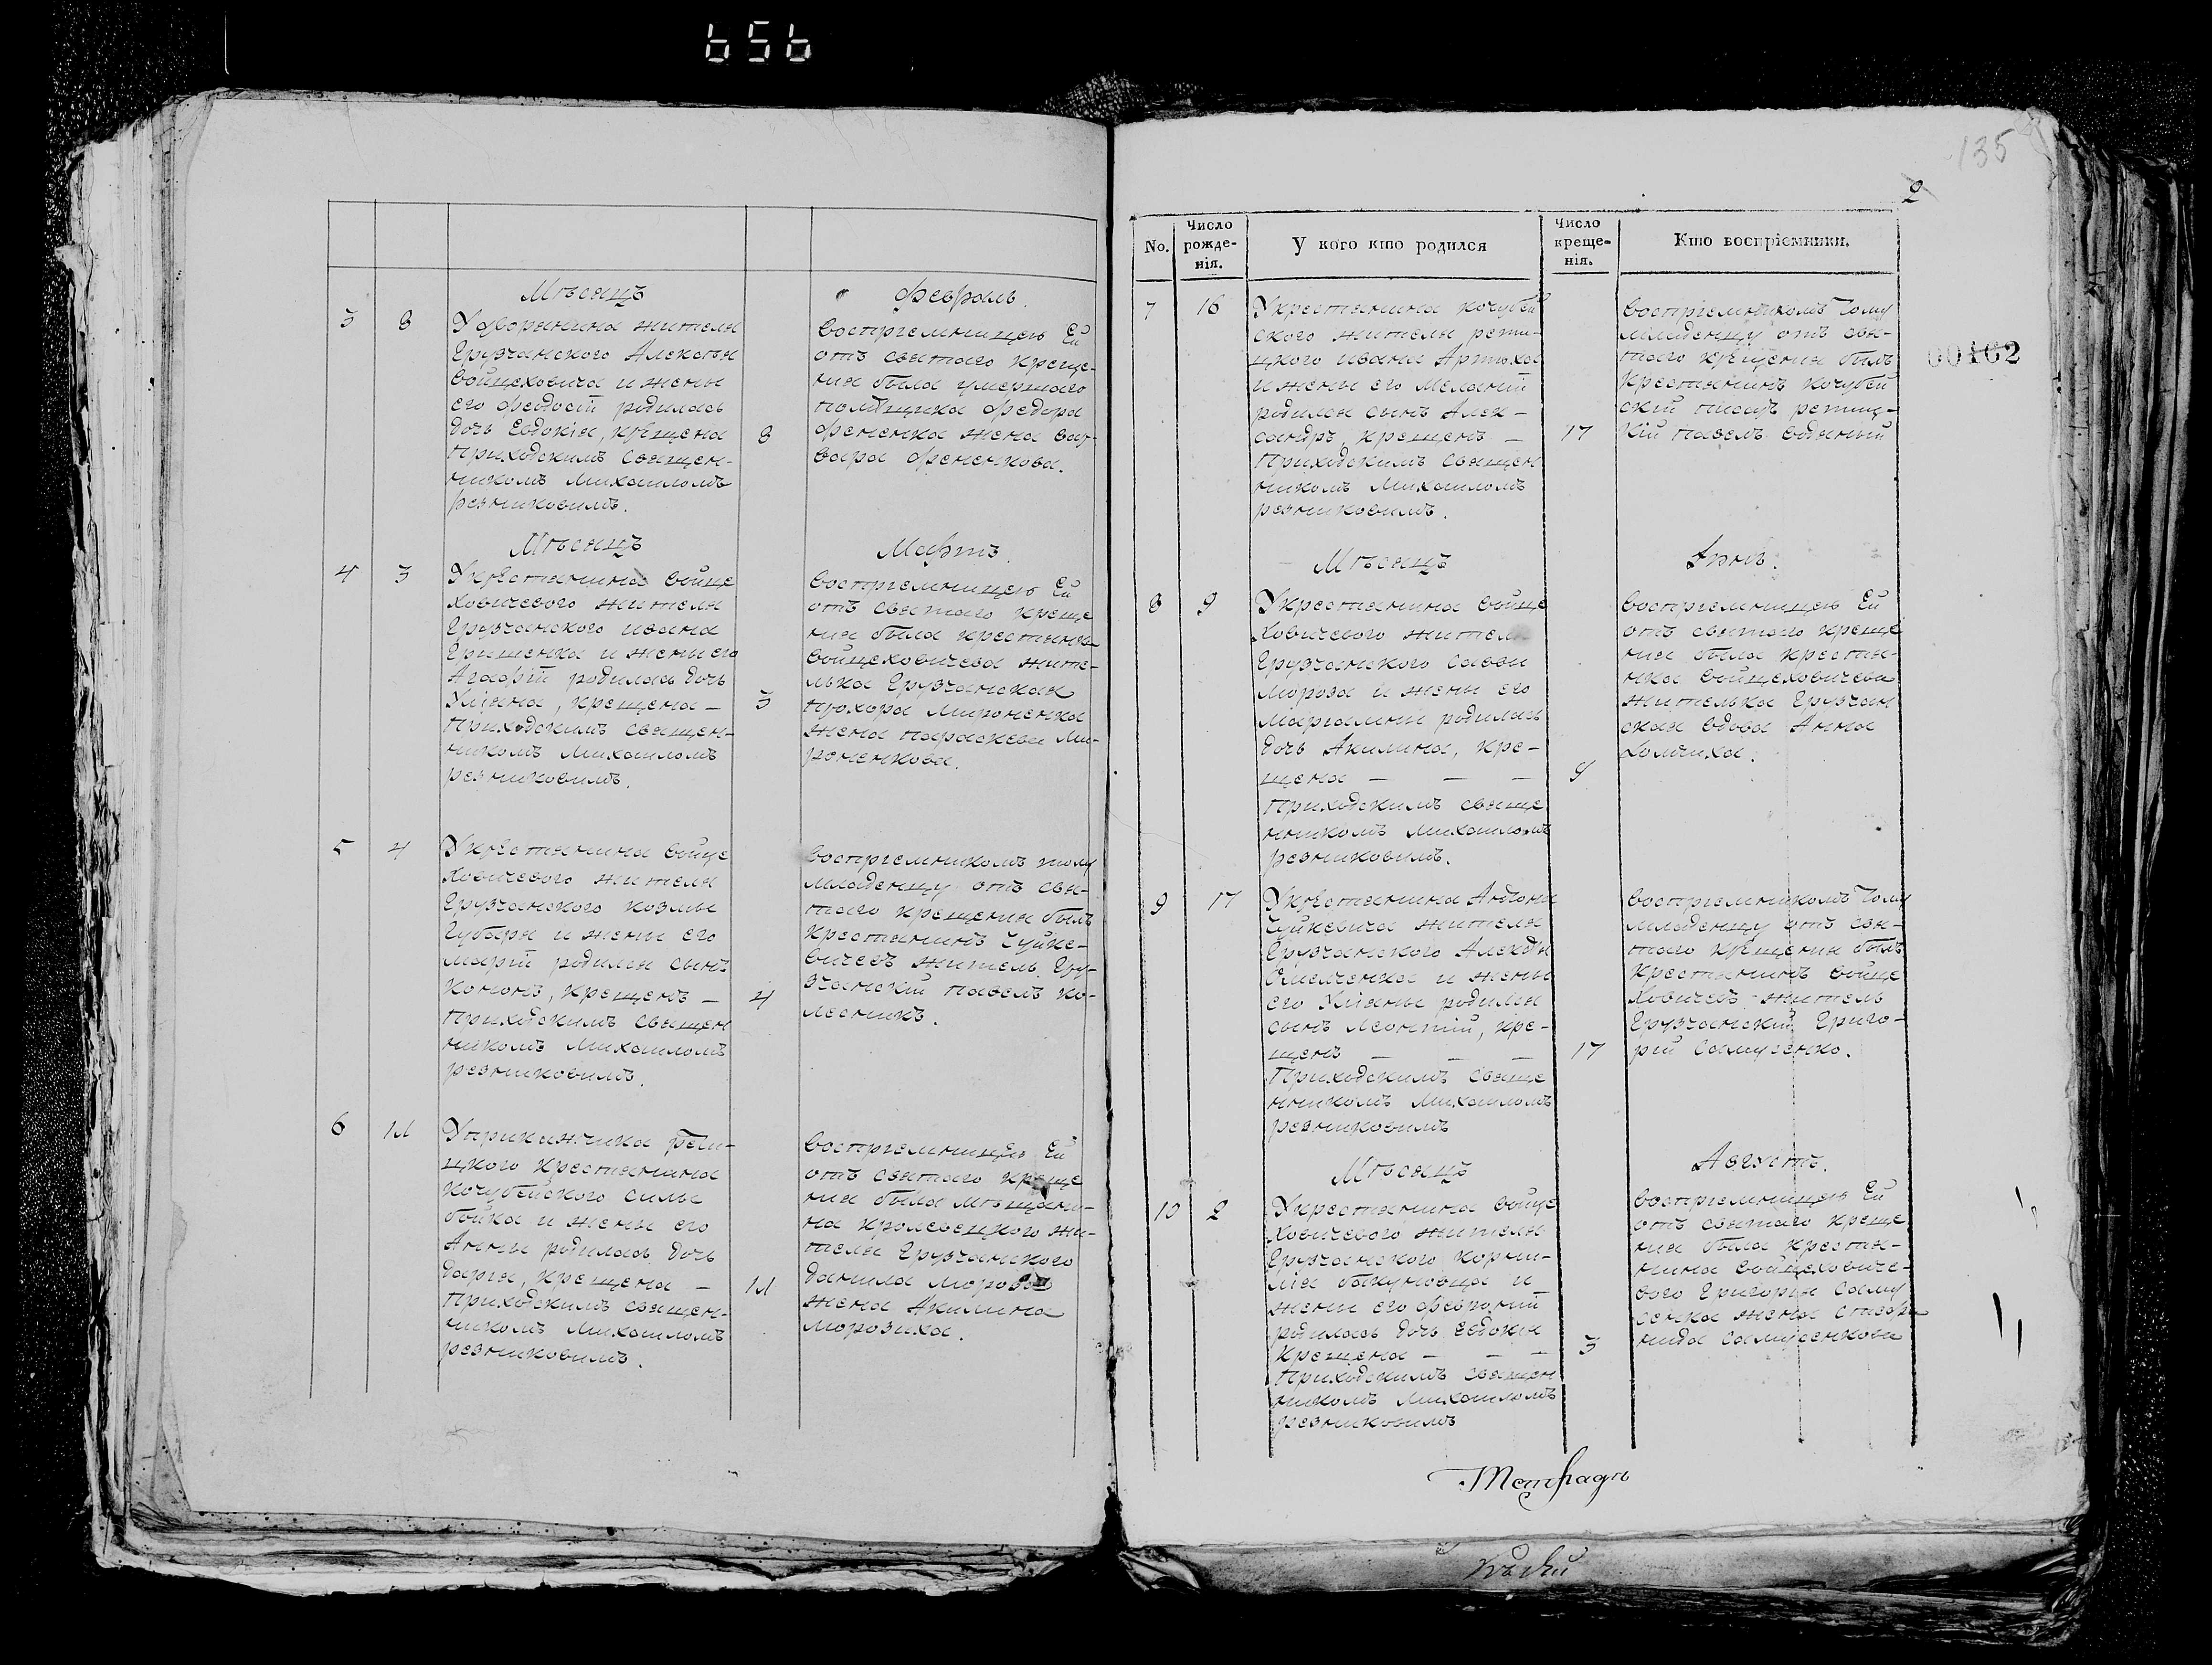 656
Мѣсяцъ
февраль.
3
8
Удворянина жителя
Грузчанского Алексѣя
Войцеховича и жены
его феодосіи родилась
дочь Евдокія, крещена
Приходскимъ священ-
никомъ Михаиломъ
резниковимъ.
8
Воспріемницею Ей
отъ святаго креще-
нія была умершаго
помѣщика федора
фененка жена вар-
вара фененкова.
Мѣсяцъ
Мартъ.
4
3
Укрестьянина войце
ховичевого жителя
Грузчанского ивана
Грищенка и жены его
Агафіи родилась дочь
Уліяна, крещена —
Приходскимъ священ-
никомъ Михаиломъ
резниковимъ.
3
Воспріемницею Ей
отъ святаго креще
нія была крестьянка
войцеховичева жите-
лька Грузчанская
прохора мироненка
жена параскева ми-
роненкова.
5
4
Укрестьянина войце
ховичевого жителя
Грузчанского козмы
Губаря и жены его
маріи родился сынъ
кононъ, крещенъ —
Приходскимъ священ
никомъ Михаиломъ
резниковимъ.
4
Воспріемникомъ тому
младенцу отъ свя-
таго крещенія былъ
крестьянинъ Чуйке-
вичевъ житель Гру-
зчанскій павелъ ко-
лесникъ.
6
Уприкажчика рети-
цкого крестьянина
кочубейского силы
бойка и жены его
Анны родилась дочь
дарія, крещена —
Приходскимъ священ-
никомъ Михаиломъ
резниковимъ.
Воспріемницею Ей
отъ святаго креще
нія была мѣщани-
на кролевецкого жи-
теля Грузчанского
данила мороза
жена Акилина
морозиха.
135
2
No.
Число
рожде-
нія.
У кого кто родился
Число
креще-
нія.
Кто воспріемники.
00162
7
16
Укрестьянина кочубей
ского жителя рети-
цкого ивана Артюха
и жены его меланіи
родился сынъ Алек-
сандръ, крещенъ —
Приходскимъ священ
никомъ Михаиломъ
резниковимъ.
17
Воспріемникомъ тому
младенцу отъ свя-
таго крещенія былъ
крестьянинъ кочубей
скій писарь ретиц-
кій павелъ
Мѣсяцъ
8
9
Укрестьянина войце
ховичевого жителя
Грузчанского саввы
мороза и жены его
родилась
дочь Акилина, кре-
щена — — —
Приходскимъ свяще
нникомъ Михаиломъ
резниковимъ.
9
Воспріемницею Ей
отъ святаго креще
нія была крестья-
нка войцеховичева
жителька Грузчан
ская вдова Анна
9
17
Укрестьянина Антона
Чуйкевича жителя
Грузчанского Алексѣя
Омелченка и жены
его Уліяны родился
сынъ леонтій, кре-
щенъ — — —
Приходскимъ свяще
нникомъ Михаиломъ
резниковимъ
17
Воспріемникомъ тому
младенцу отъ свя-
таго крещенія былъ
крестьянинъ войце
ховичевъ житель
Грузчанскій Григо-
рій Самусенко.
Мѣсяцъ
Августъ.
10
2
Укрестьянина войце
ховичевого жителя
Грузчанского корни-
лія бакуновца и
жены его февроніи
родилась дочь Евдокія
крещена — — —
Приходскимъ священ
никомъ Михаиломъ
резниковимъ
3
Воспріемницею Ей
отъ святаго креще
нія была крестья-
нина войцеховиче-
вого Григорія Саму
сенка жена
Самусенкова